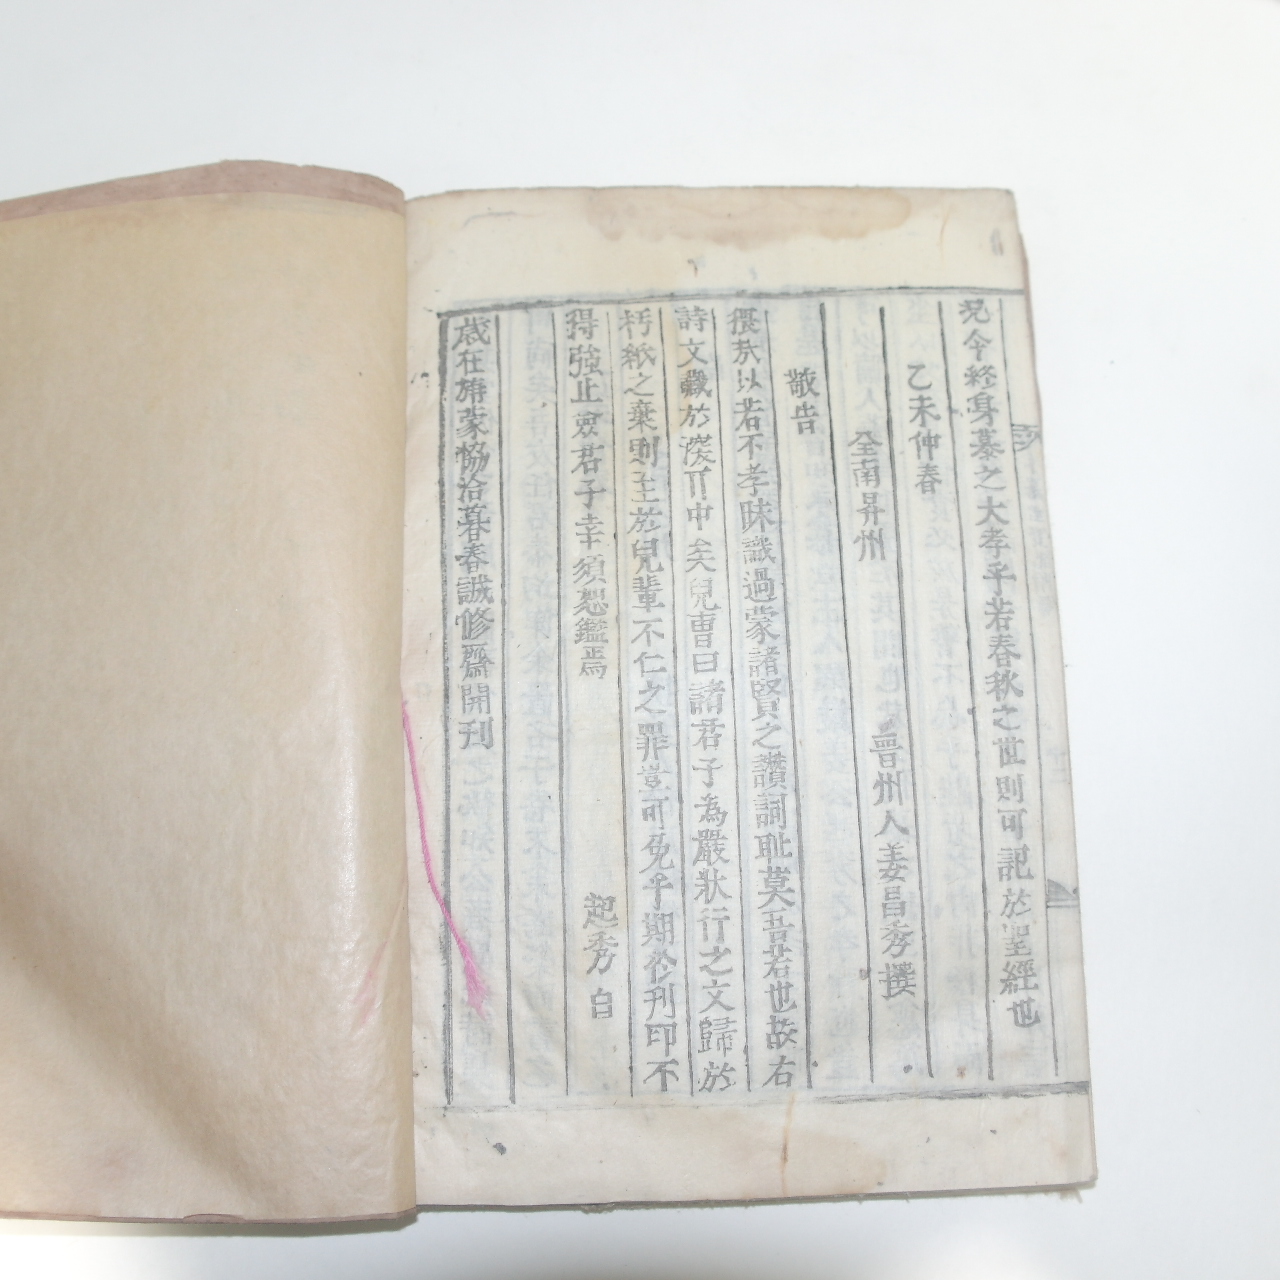 兄今終身慕之大孝乎若春秋之世則可記於聖經也
乙未仲春
全南昇州 晉州人姜昌秀撰
敬告
猥茲以若不孝昧識過蒙諸賢之讚詞耻莫吾若也故右
詩文藏於深 中矣兒曹曰諸君子為嚴狀行之文歸於
朽紙之棄則至於兒輩不仁之罪豈可免乎期於刊印不
得強止 君子幸須恕鑑焉 起秀 白
歲在旃蒙協洽暮春誠修齋開刊